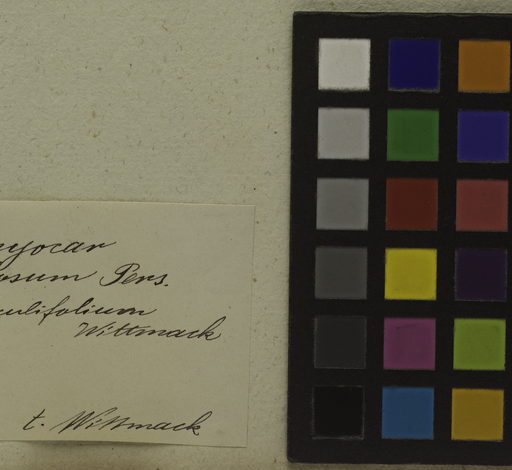 yocar
osum Pers.
ulifolium
Wittmack
t. Wittmack